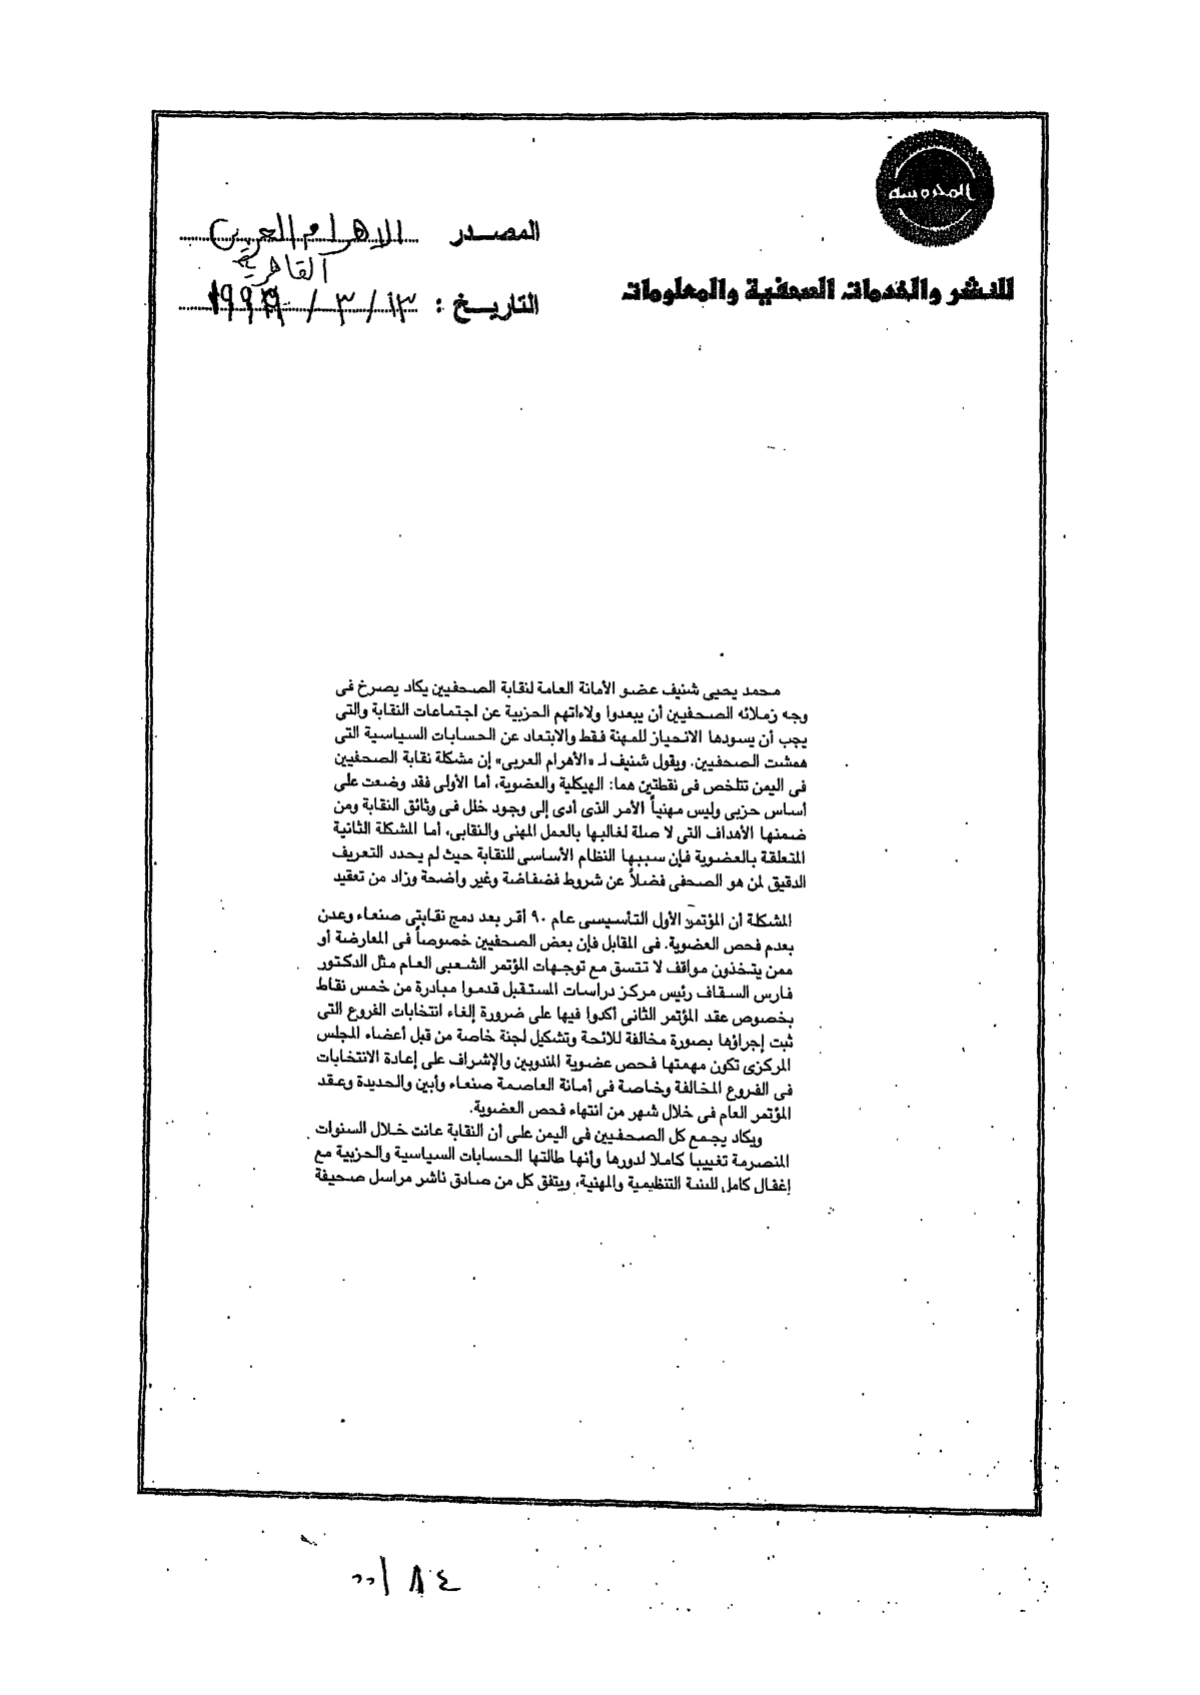 المحروسة
للنشر والخدمات الصحفية والمعلومات
المصدر الاهرام العربى
القاهرية
التاريخ : ١٣ / ٣ / ١٩٩٩
محمد يحيى شنيف عضو الأمانة العامة لنقابة الصحفيين يكاد يصرخ فى
وجه زملائه الصحفيين أن يبعدوا ولاءاتهم الحزبية عن اجتماعات النقابة والتى
يجب أن يسودها الانحياز للمهنة فقط والابتعاد عن الحسابات السياسية التى
همشت الصحفيين. ويقول شنيف لـ «الأهرام العربى» إن مشكلة نقابة الصحفيين
فى اليمن تتلخص فى نقطتين هما: الهيكلية والعضوية، أما الأولى فقد وضعت على
أساس حزبى وليس مهنياً الأمر الذى أدى إلى وجود خلل فى وثائق النقابة ومن
ضمنها الأهداف التى لا صلة لغالبها بالعمل المهنى والنقابى، أما المشكلة الثانية
المتعلقة بالعضوية فإن سببها النظام الأساسى للنقابة حيث لم يحدد التعريف
الدقيق لمن هو الصحفى فضلاً عن شروط فضفاضة وغير واضحة وزاد من تعقيد
المشكلة أن المؤتمر الأول التأسيسى عام ٩٠ أقر بعد دمج نقابتى صنعاء وعدن
بعدم فحص العضوية. فى المقابل فإن بعض الصحفيين خصوصاً فى المعارضة أو
ممن يتخذون مواقف لا تتسق مع توجهات المؤتمر الشعبى العام مثل الدكتور
فارس السقاف رئيس مركز دراسات المستقبل قدموا مبادرة من خمس نقاط
بخصوص عقد المؤتمر الثانى أكدوا فيها على ضرورة إلغاء انتخابات الفروع التى
ثبت إجراؤها بصورة مخالفة للائحة وتشكيل لجنة خاصة من قبل أعضاء المجلس
المركزى تكون مهمتها فحص عضوية المندوبين والإشراف على إعادة الانتخابات
فى الفروع المخالفة وخاصة فى أمانة العاصمة صنعاء وأبين والحديدة وعقد
المؤتمر العام فى خلال شهر من انتهاء فحص العضوية.
ويكاد يجمع كل الصحفيين فى اليمن على أن النقابة عانت خلال السنوات
المنصرمة تغييبا كاملا لدورها وأنها طالتها الحسابات السياسية والحزبية مع
إغفال كامل للبنية التنظيمية والمهنية، ويتفق كل من صادق ناشر مراسل صحيفة